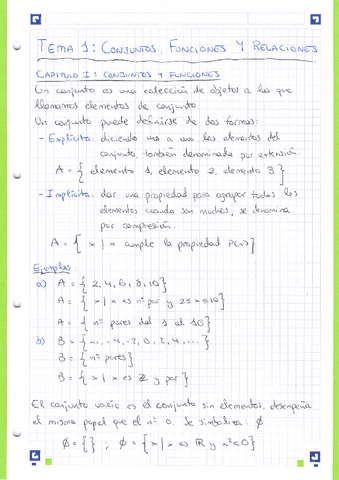 TEMA 1: CONJUNTOS, FUNCIONES Y RELACIONES
CAPITULO I: CONJUNTOS Y FUNCIONES
Un conjunto es una colección de objetos a los que
llamamos elementos de conjunto.
Un conjunto puede definirse de dos formas:
- Explícita: diciendo uno a uno los elementos del
conjunto, también denominada por extensión.
A = { elemento 1, elemento 2, elemento 3 }
- Implícita: dar una propiedad para agrupar todos los
elementos cuando son muchos, se denomina
por compresión.
A = { x | x cumple la propiedad P(x) }
Ejemplos:
a) A = { 2, 4, 6, 8, 10 }
A = { x | x es nº par y 2 ≤ x ≤ 10 }
A = { nº pares del 1 al 10 }
b) B = { ..., -4, -2, 0, 2, 4, ... }
B = { nº pares }
B = { x | x es ℤ y par }
El conjunto vacío es el conjunto sin elementos, desempeña
el mismo papel que el nº 0. Se simboliza: ∅
∅ = { } ; ∅ = { x | x es ℝ y x² < 0 }